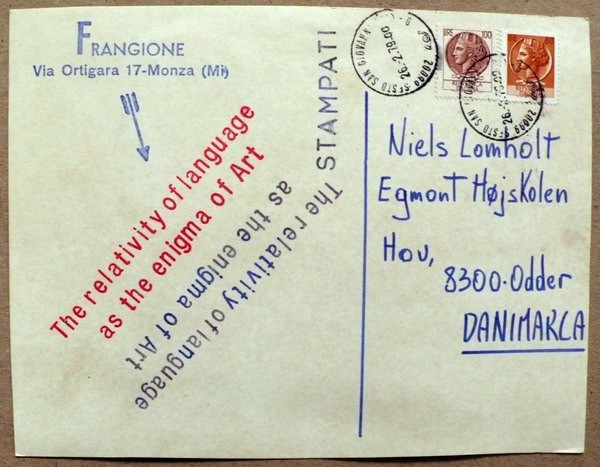 FRANGIONE
Via Ortigara 17-Monza (Mi)
The relativity of language
as the enigma of Art
The relativity of language
as the enigma of Art
STAMPATI
20099 SESTO SAN GIOVANN
26.2.79.00
LIRE 100
20099 SESTO SAN GIOVAN
Niels Lomholt
Egmont HøjsKolen
Hov,
8300-Odder
DANIMARCA